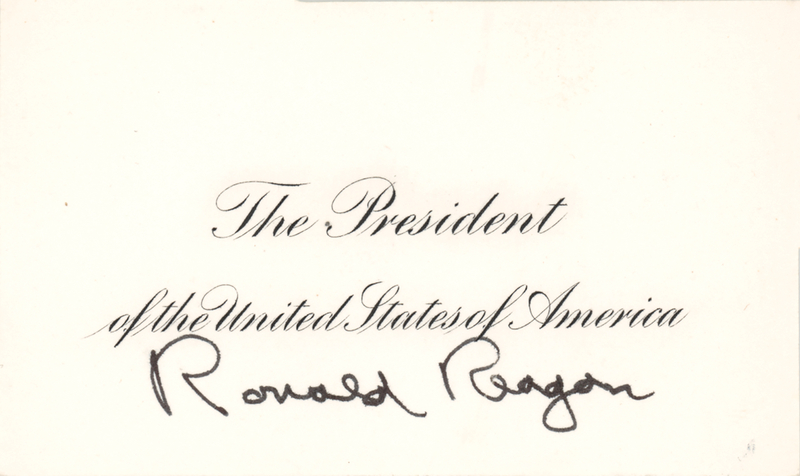 The President
of the United States of America
Ronald Reagan